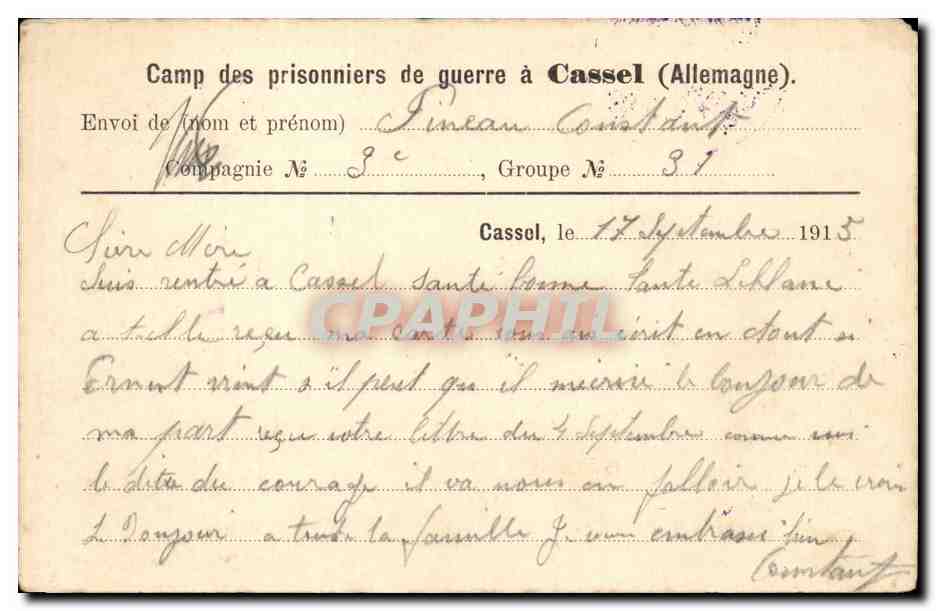 Camp des prisonniers de guerre à Cassel (Allemagne).
Envoi de (nom et prénom) Pineau Constant
Compagnie № 3e, Groupe № 31
Cassel, le 17 Septembre 1915
Mère
Suis rentré a Cassel santé bonne tante Leblanc
a t elle reçu ma carte vous ais écrit en Aout si
Ernest vient s'il peut qu'il mecrive le bonjour de
ma part reçu votre lettre du 4 Septembre comme
le dite du courage il va nous en falloir je le crois
Bonjour a toute la famille Je vous embrasse bien
Constant
CPAPHIL